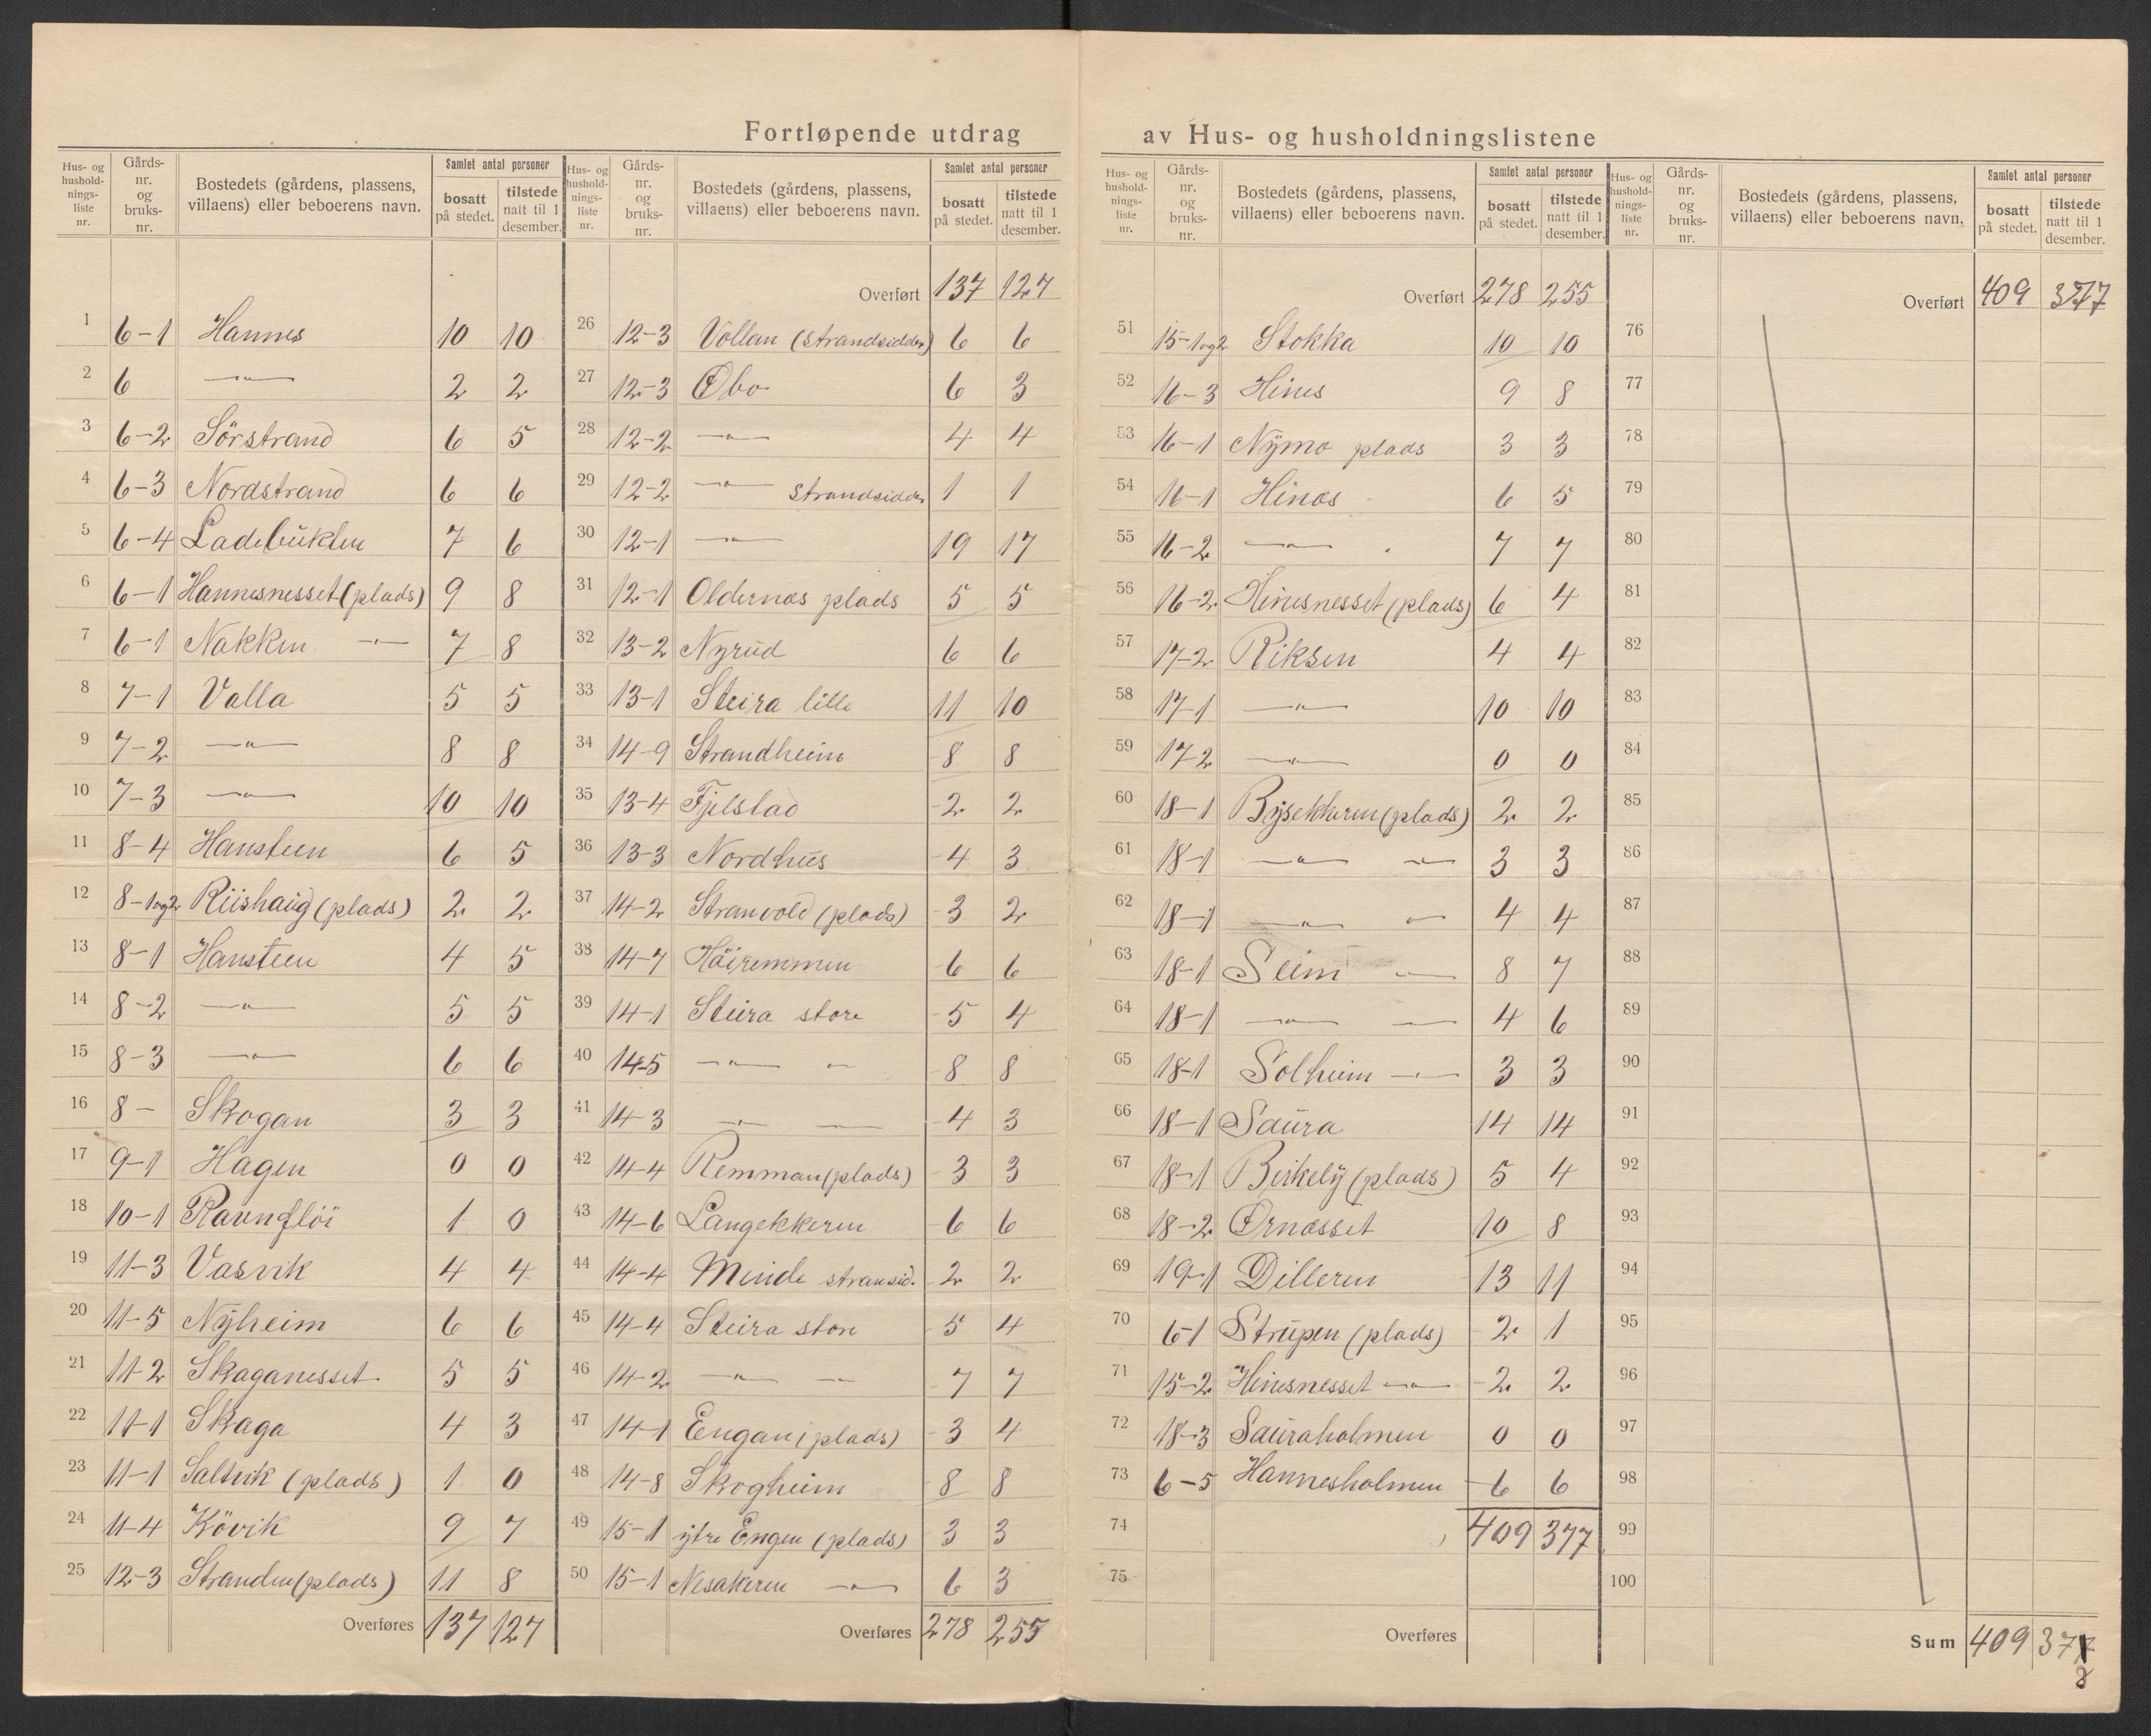 Fortløpende utdrag av Hus- og husholdningslistene
Hus- og husholdningsliste nr. | Gårds- nr. og bruks- nr. | Bostedets (gårdens, plassens, villaens) eller beboerens navn. | Samlet antal personer bosatt på stedet. | tilstede natt til 1 desember.
1 6-1 Hannes 10 10
2 6 —„— 2 2
3 6-2 Sörstrand 6 5
4 6-3 Nordstrand 6 6
5 6-4 Ladebukten 7 6
6 6-1 Hannesnesset (plads) 9 8
7 6-1 Nakken —„— 7 8
8 7-1 Valla 5 5
9 7-2 —„— 8 8
10 7-3 —„— 10 10
11 8-4 Hansteen 6 5
12 8-1og2 Riishaug (plads) 2 2
13 8-1 Hansteen 4 5
14 8-2 —„— 5 5
15 8-3 —„— 6 6
16 8- Skogan 3 3
17 9-1 Hagen 0 0
18 10-1 Ravnflöi 1 0
19 11-3 Vasvik 4 4
20 11-5 Nyheim 6 6
21 11-2 Skaganesset 5 5
22 11-1 Skaga 4 3
23 11-1 Saltvik (plads) 1 0
24 11-4 Kövik 9 7
25 12-3 Stranden (plads) 11 8
Overføres 137 127
Hus- og husholdningsliste nr. | Gårds- nr. og bruks- nr. | Bostedets (gårdens, plassens, villaens) eller beboerens navn. | Samlet antal personer bosatt på stedet. | tilstede natt til 1 desember.
Overført 137 127
26 12-3 Vollan (strandsidder) 6 6
27 12-3 Øbo 6 3
28 12-2 —„— 4 4
29 12-2 —„— strandsidder 1 1
30 12-1 —„— 19 17
31 12-1 Oldernæs plads 5 5
32 13-2 Nyrud 6 6
33 13-1 Steira lille 11 10
34 14-9 Strandheim 8 8
35 13-4 Fjelstad 2 2
36 13-3 Nordhus 4 3
37 14-2 Stranvold (plads) 3 2
38 14-7 Höiremmen 6 6
39 14-1 Steira store 5 4
40 14-5 —„— —„— 8 8
41 14-3 —„— —„— 4 3
42 14-4 Remman (plads) 3 3
43 14-6 Langekkeren 6 6
44 14-4 Minde stransid. 2 2
45 14-4 Steira store 5 4
46 14-2 —„— —„— 7 7
47 14-1 Engan (plads) 3 4
48 14-8 Skogheim 8 8
49 15-1 ytre Engen (plads) 3 3
50 15-1 Nesakeren —„— 6 3
Overføres 278 255
Hus- og husholdningsliste nr. | Gårds- nr. og bruks- nr. | Bostedets (gårdens, plassens, villaens) eller beboerens navn. | Samlet antal personer bosatt på stedet. | tilstede natt til 1 desember.
Overført 278 255
51 15-1og2 Stokka 10 10
52 16-3 Hines 9 8
53 16-1 Nymo plads 3 3
54 16-1 Hinæs 6 5
55 16-2 —„— 7 7
56 16-2 Hinesnesset (plads) 6 4
57 17-2 Riksen 4 4
58 17-1 —„— 10 10
59 17-2 —„— 0 0
60 18-1 Bysekkeren (plads) 2 2
61 18-1 —„— —„— 3 3
62 18-1 —„— —„— 4 4
63 18-1 Seim —„— 8 7
64 18-1 —„— —„— 4 6
65 18-1 Solheim —„— 3 3
66 18-1 Saura 14 14
67 18-1 Birkely (plads) 5 4
68 18-2 Ørnæsset 10 8
69 19-1 Dilleren 13 11
70 6-1 Strupen (plads) 2 1
71 15-2 Hinesnesset —„— 2 2
72 18-3 Sauraholmen 0 0
73 6-5 Hannesholmen 6 6
74 409 377
75
Overføres
Hus- og husholdningsliste nr. | Gårds- nr. og bruks- nr. | Bostedets (gårdens, plassens, villaens) eller beboerens navn. | Samlet antal personer bosatt på stedet. | tilstede natt til 1 desember.
Overført 409 377
76
77
78
79
80
81
82
83
84
85
86
87
88
89
90
91
92
93
94
95
96
97
98
99
100
Sum 409 377
8